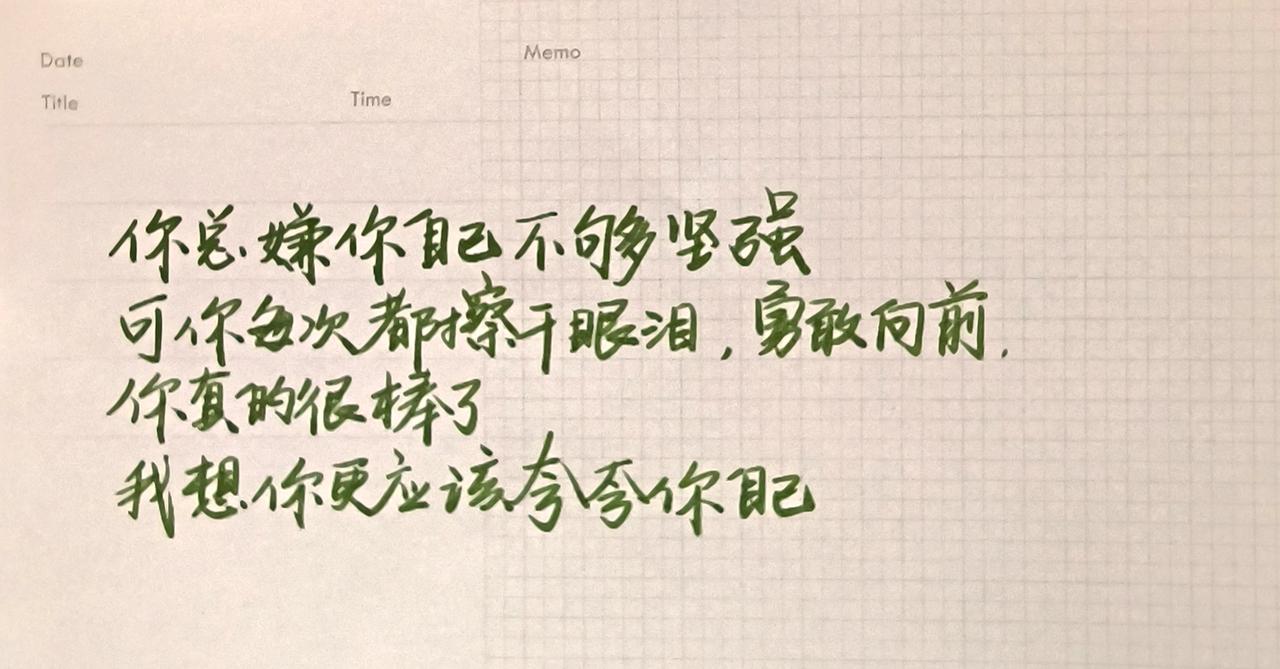 Date
Memo
Title
Time
你总嫌你自己不够坚强
可你每次都擦干眼泪，勇敢向前.
你真的很棒了
我想你更应该夸夸你自己